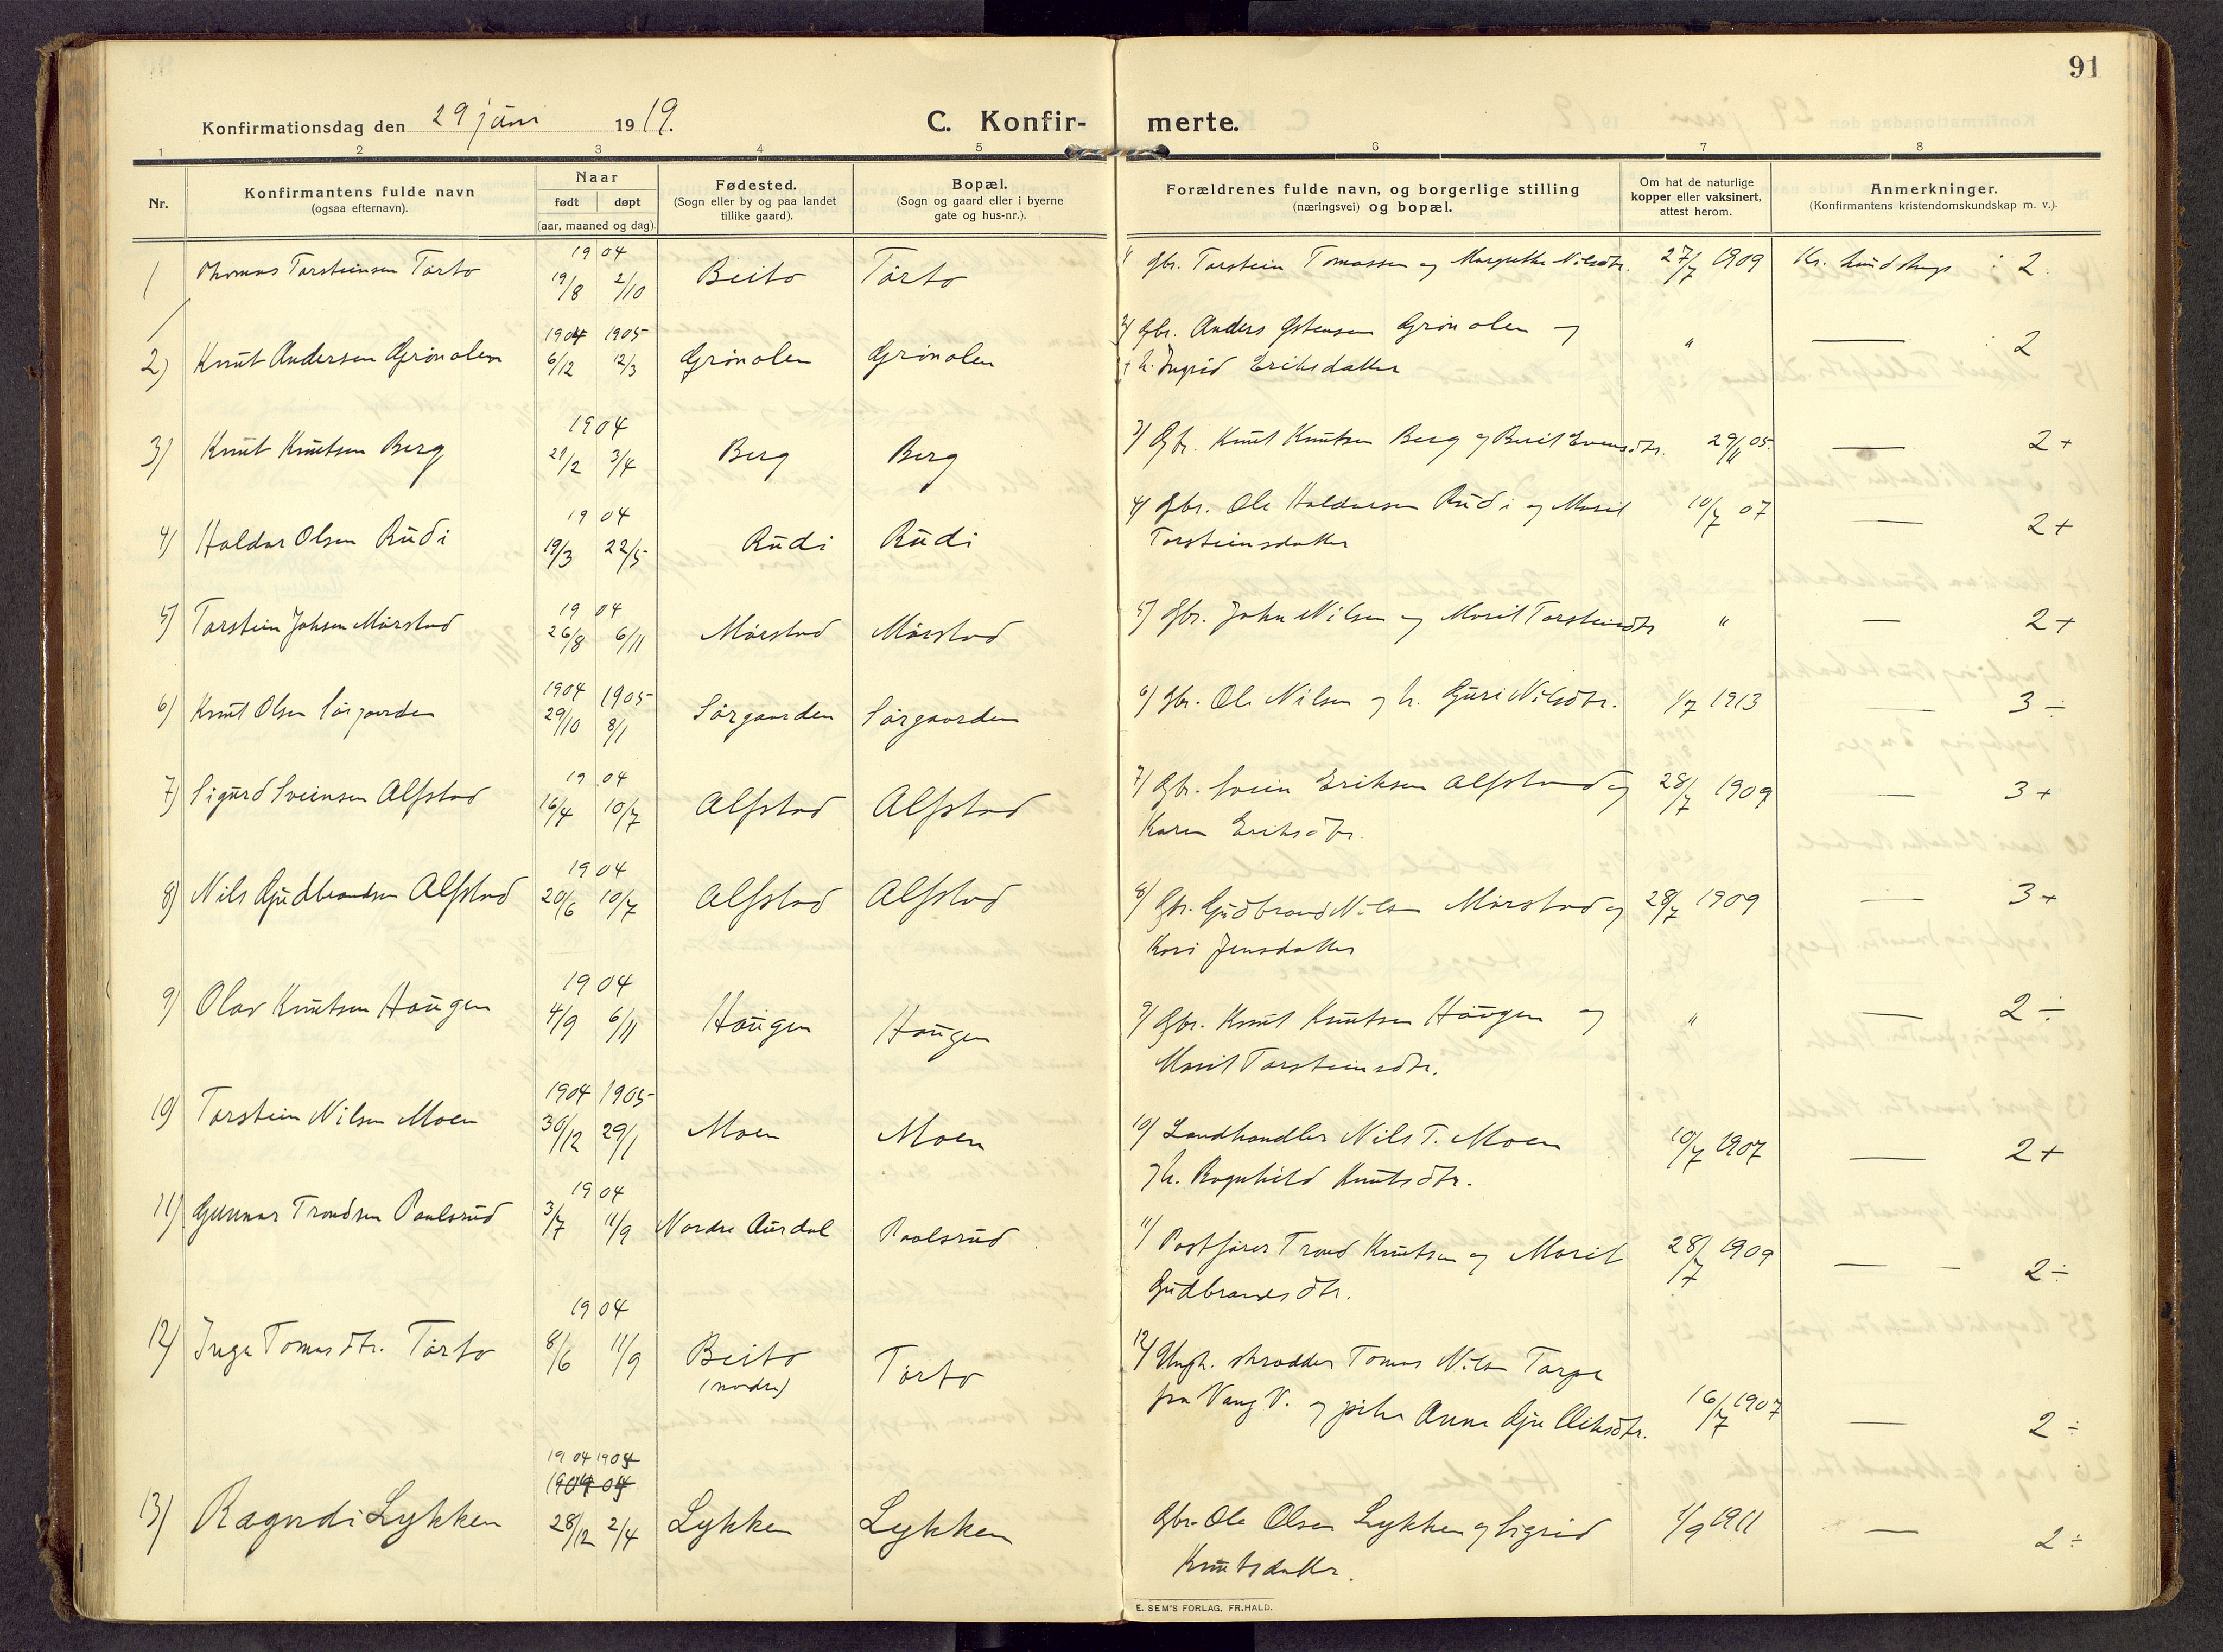 91
Konfirmationsdag den 29 juni 1919.
C. Konfir- merte.
1 2 3 4 5 6 7 8
Nr.
Konfirmantens fulde navn
(ogsaa efternavn).
Naar
født døpt
(aar, maaned og dag).
Fødested.
(Sogn eller by og paa landet
tillike gaard).
Bopæl.
(Sogn og gaard eller i byerne
gate og hus-nr.).
Forældrenes fulde navn, og borgerlige stilling
(næringsvei) og bopæl.
Om hat de naturlige
kopper eller vaksinert,
attest herom.
Anmerkninger.
(Konfirmantens kristendomskundskap m. v.).
1904
1 Thomas Torsteinsen Tørto 19/8 2/10 Beito Tørto 1/ Gbr. Torstein Tomassen og Margrethe Nilsdtr. 27/7 1909 Kr. kundskaps : 2.
1904 1905
2) Knut Andersen Grønolen 6/12 12/3 Grønolen Grønolen 2/ Gbr. Anders Østensen Grønolen og " — : 2
+ h. Ingrid Eriksdatter
1904
3) Knut Knutsen Berg 29/2 3/4 Berg Berg 3/ Gbr. Knut Knutsen Berg og Berit Evensdtr. 29/11 05. — 2+
1904
4) Haldor Olsen Rudi 19/3 22/5 Rudi Rudi 4/ Gbr. Ole Haldorsen Rudi og Marit 10/7 07 — 2+
Torsteinsdatter
1904
5) Torstein Johsen Mørstad 26/8 6/11 Mørstad Mørstad 5/ Gbr. John Nilsen og Marit Torsteinsdtr " — 2+
1904 1905
6) Knut Olsen Sørgaarden 29/10 8/1 Sørgaarden Sørgaarden 6/ Gbr. Ole Nilsen og h. Guri Nilsdtr. 1/7 1913 — 3÷
1904
7) Sigurd Sveinsen Alfstad 16/4 10/7 Alfstad Alfstad 7/ Gbr. Svein Eriksen Alfstad og 28/7 1909 — 3+
Karen Eriksdtr.
1904
8) Nils Gudbrandsen Alfstad 20/6 10/7 Alfstad Alfstad 8/ Gbr. Gudbrand Nilsen Mørstad og 28/7 1909 — 3+
Kari Jensdatter
1904
9) Olav Knutsen Haugen 4/9 6/11 Haugen Haugen 9/ Gbr. Knut Knutsen Haugen og " — 2÷
Marit Torsteinsdtr.
1904 1905
10) Torstein Nilsen Moen 30/12 29/1 Moen Moen 10/ Landhandler Nils T. Moen 10/7 1907 — 2+
og h. Ragnhild Knutsdtr.
1904
11) Gunnar Trondsen Paulsrud 3/7 11/9 Nordre Aurdal Paulsrud 11/ Postfører Trond Knutsen og Marit 28/7 1909 — 2÷
Gudbrandsdtr.
1904
12) Inga Tomasdtr. Tørto 8/6 11/9 Beito Tørto 12/ Ungk. skrædder Tomas Nilsen Torpe
(nordre)
fra Vang V. og pike Anne Gjertrud 16/7 1907 — 2÷
1904 1905
1904 05
13) Ragndi Lykken 28/12 2/4 Lykken Lykken Gbr. Ole Olsen Lykken og Sigrid 1/9 1911 — 2÷
Knutsdatter.
E. SEM'S FORLAG, FR.HALD.